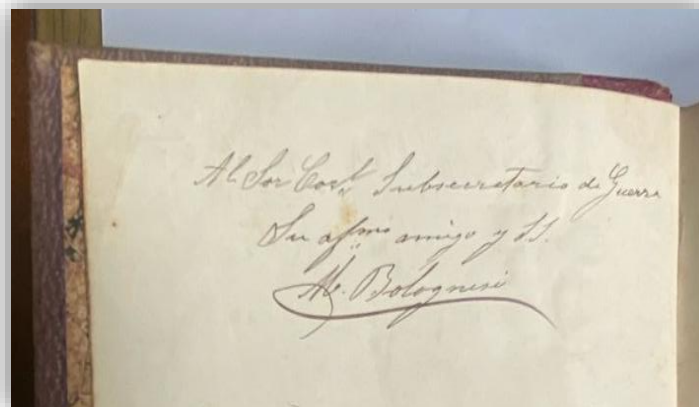 Al Sor Corl Subsecretario de Guerra
Su affmo amigo y SS.
M. Bolognesi